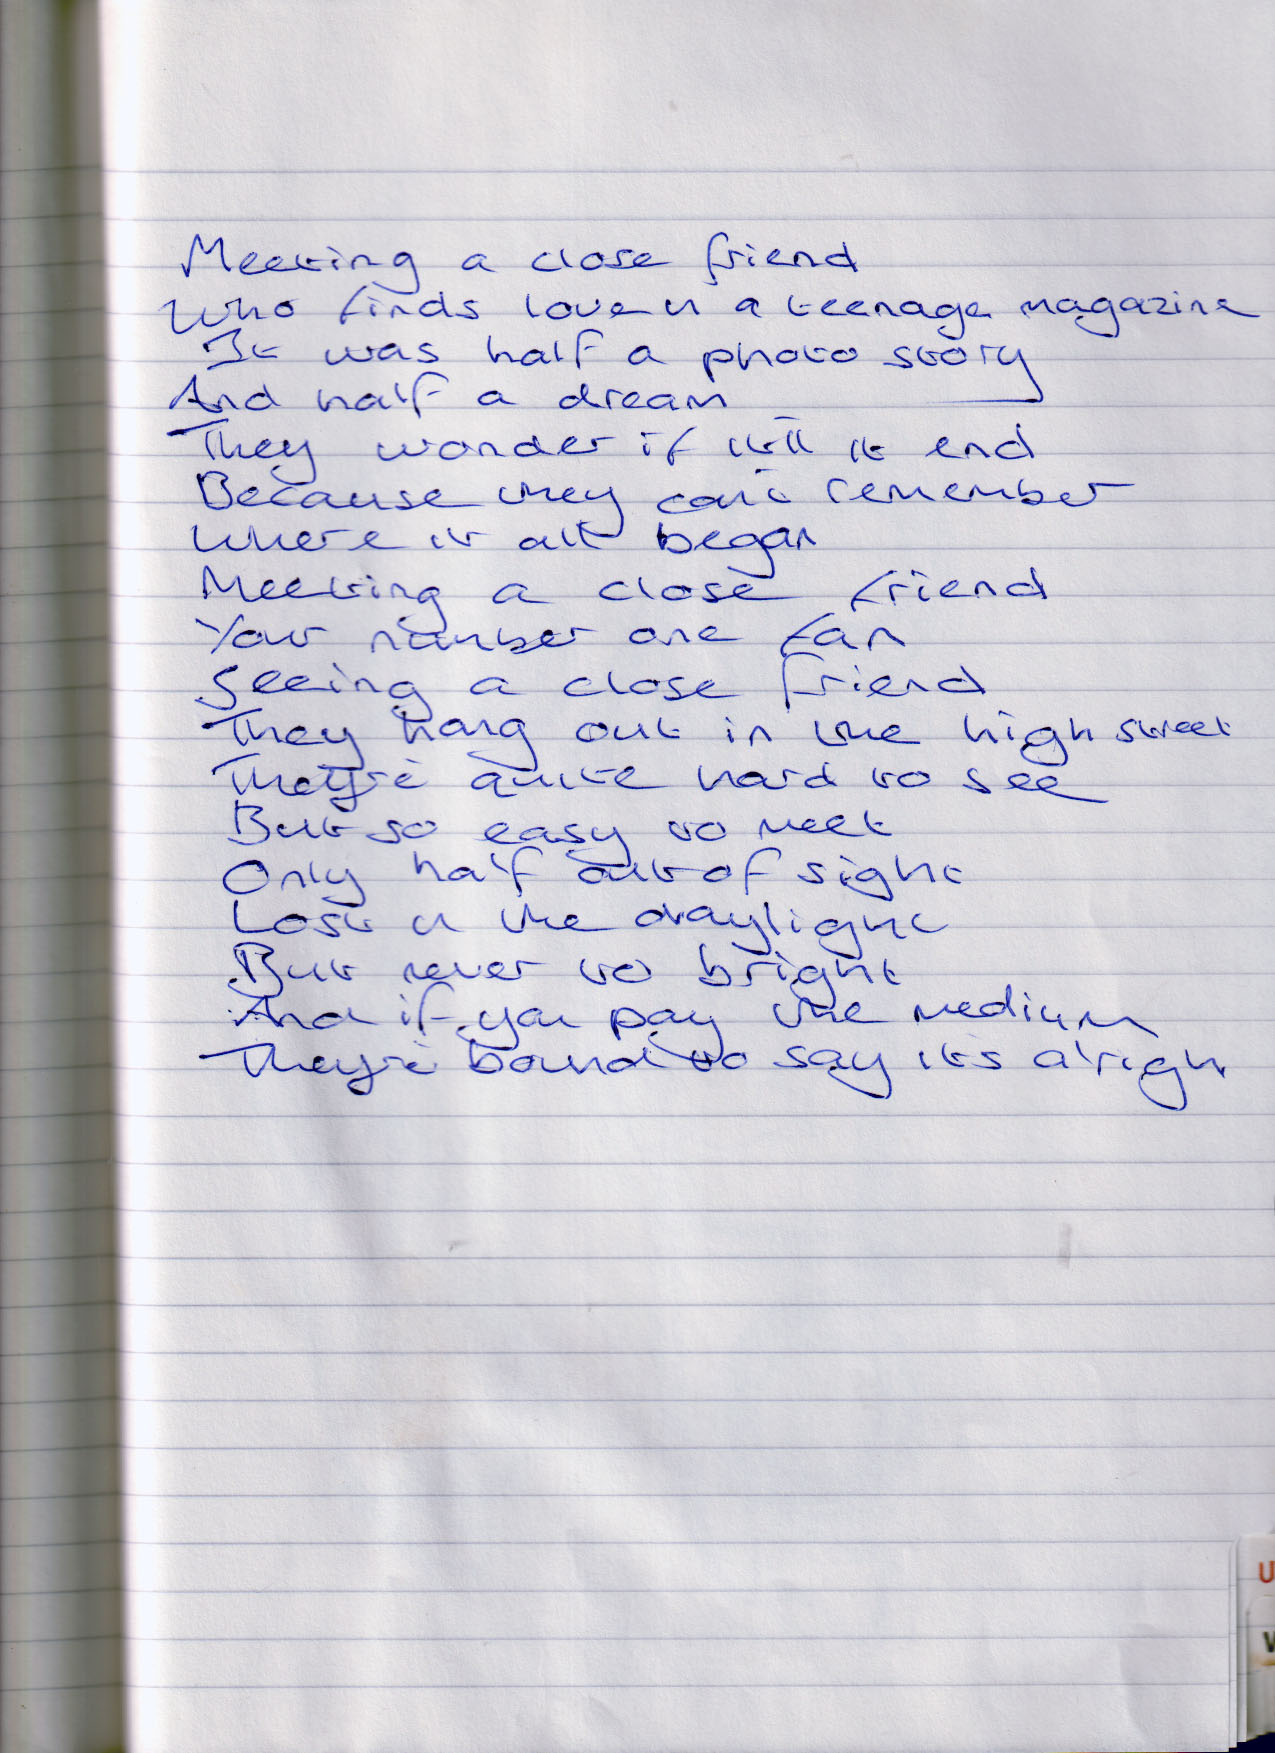 Meeting a close friend
Who finds love in a teenage magazine
It was half a photo story
And half a dream
They wonder if it'll end
Because they can't remember
Where it all began
Meeting a close friend
Your number one fan
Seeing a close friend
They hang out in the high street
They're quite hard to see
But so easy to meet
Only half out of sight
Lost in the daylight
But never to bright
And if you pay the medium
They're bound to say it's alrigh
U